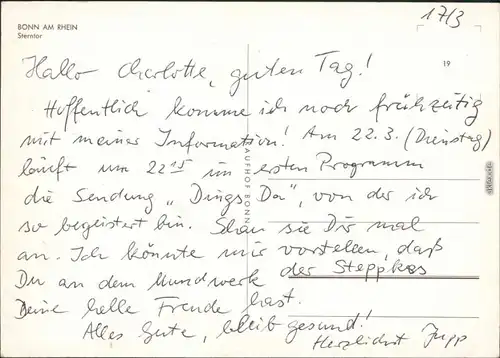 BONN AM RHEIN
Sterntor
17/3
19
Hallo Charlotte, guten Tag!
Hoffentlich komme ich noch frühzeitig
mit meiner Information! Am 22.3. (Dienstag)
läuft um 22 15 im ersten Programm
die Sendung „Dings Da", von der ich
so begeistert bin. Schau sie Dir mal
an. Ich könnte mir vorstellen, daß
Du an dem Mundwerk der Steppkes
Deine helle Freude hast.
Alles Gute, bleib gesund!
Herzlichst Jupp
KAUFHOF BONN